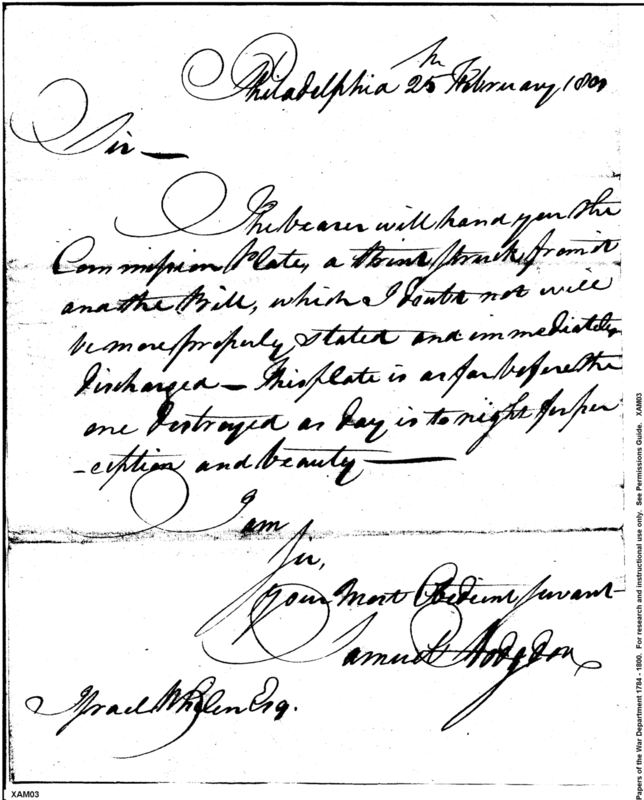 Philadelphia 25th February 1801
Sir —
The bearer will hand you the
Commission Plate, a Print struck from it
and the Bill, which I doubt not will
be more properly stated and immediately
discharged — This plate is as far before the
one destroyed as day is to night for per
-ception and beauty —
I am
Sir,
Your Most Obedient servant
Samuel Hodgdon
Israel Whelen Esq.
XAM03
Papers of the War Department 1784 - 1800. For research and instructional use only. See Permissions Guide. XAM03